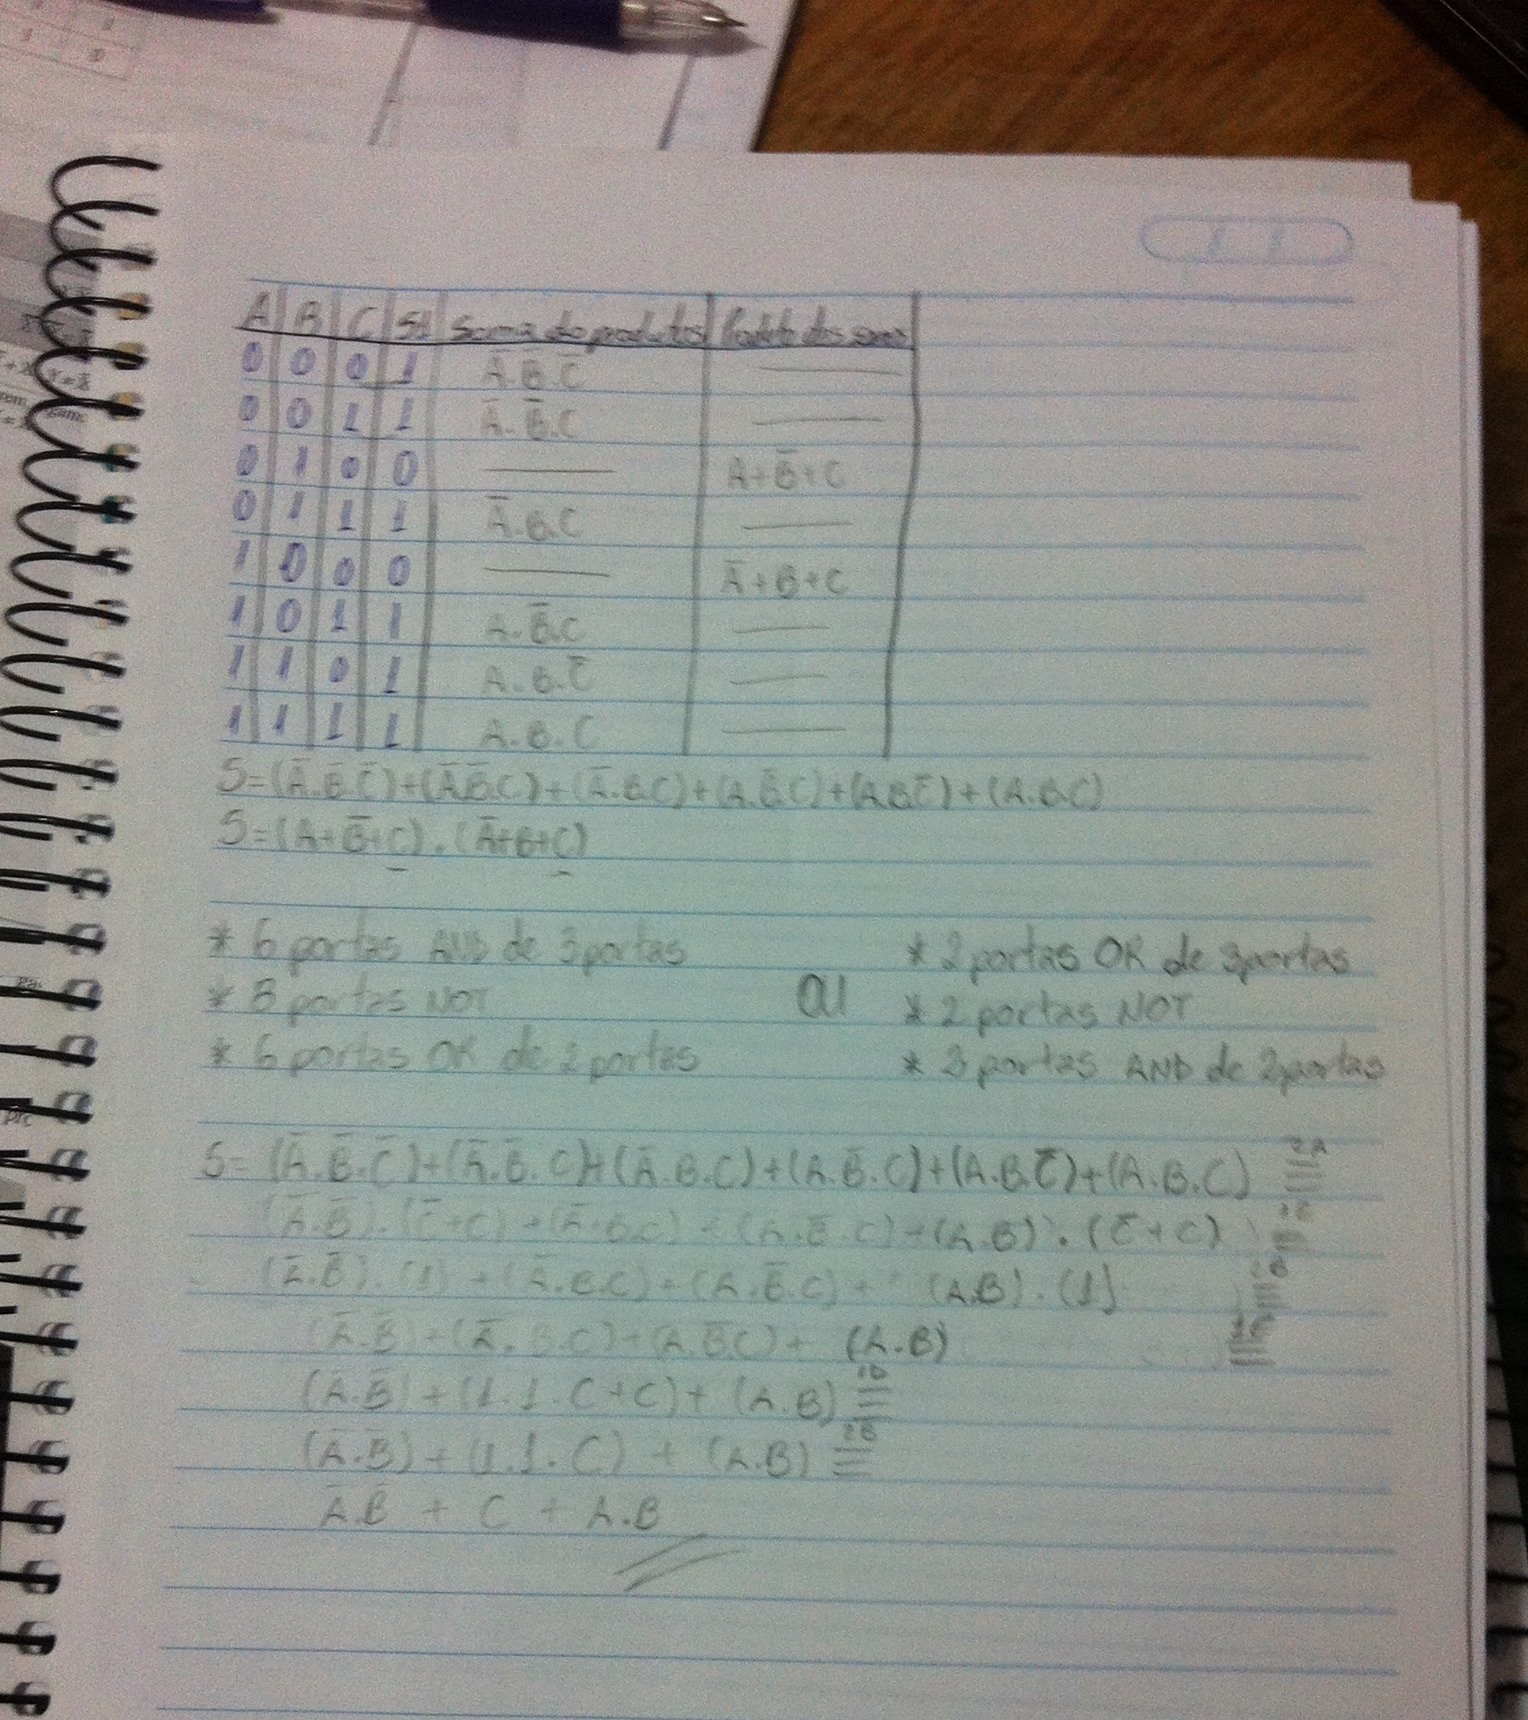 A B C S1 Soma do produtos Produto das somas
0 0 0 1 A̅.B̅.C̅
0 0 1 1 A̅.B̅.C
0 1 0 0 A+B̅+C
0 1 1 1 A̅.B.C
1 0 0 0 A̅+B+C
1 0 1 1 A.B̅.C
1 1 0 1 A.B.C̅
1 1 1 1 A.B.C
S=(A̅.B̅.C̅)+(A̅.B̅.C)+(A̅.B.C)+(A.B̅.C)+(A.B.C̅)+(A.B.C)
S=(A+B̅+C).(A̅+B+C)
* 6 portas AND de 3 portas
* 3 portas NOT
* 6 portas OR de 2 portas
OU
* 2 portas OR de 3 portas
* 2 portas NOT
* 3 portas AND de 2 portas
S= (A̅.B̅.C̅)+(A̅.B̅.C)+(A̅.B.C)+(A.B̅.C)+(A.B.C̅)+(A.B.C)
(A̅.B̅).(C̅+C)+(A̅.B.C)+(A.B̅.C)+(A.B).(C̅+C)
(A̅.B̅).(1)+(A̅.B.C)+(A.B̅.C)+(A.B).(1)
(A̅.B̅)+(A̅.B.C)+(A.B̅.C)+(A.B)
(A̅.B̅)+(1.1.C+C)+(A.B)
(A̅.B̅)+(1.1.C)+(A.B)
A̅.B̅ + C + A.B